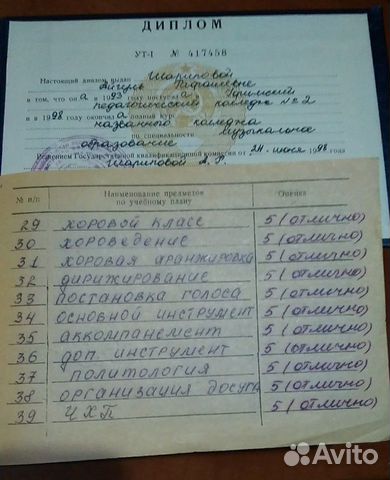 ДИПЛОМ
УТ-I № 417458
Настоящий диплом выдан Шариповой
Айгуль
в том, что он а в 1993 году поступил а в Уфимский
педагогический колледж № 2
и в 1998 году окончил а полный курс
названного колледжа
по специальности музыкальное
образование
Решением Государственной квалификационной комиссии от 24 июня 1998 года
Шариповой А. Р.
№ п/п Наименование предметов по учебному плану Оценка
29 хоровой класс 5 (отлично)
30 хороведение 5 (отлично)
31 хоровая аранжировка 5 (отлично)
32 дирижирование 5 (отлично)
33 постановка голоса 5 (отлично)
34 основной инструмент 5 (отлично)
35 аккомпанемент 5 (отлично)
36 доп. инструмент 5 (отлично)
37 политология 5 (отлично)
38 организация досуга 5 (отлично)
39 ЧХП 5 (отлично)
Avito